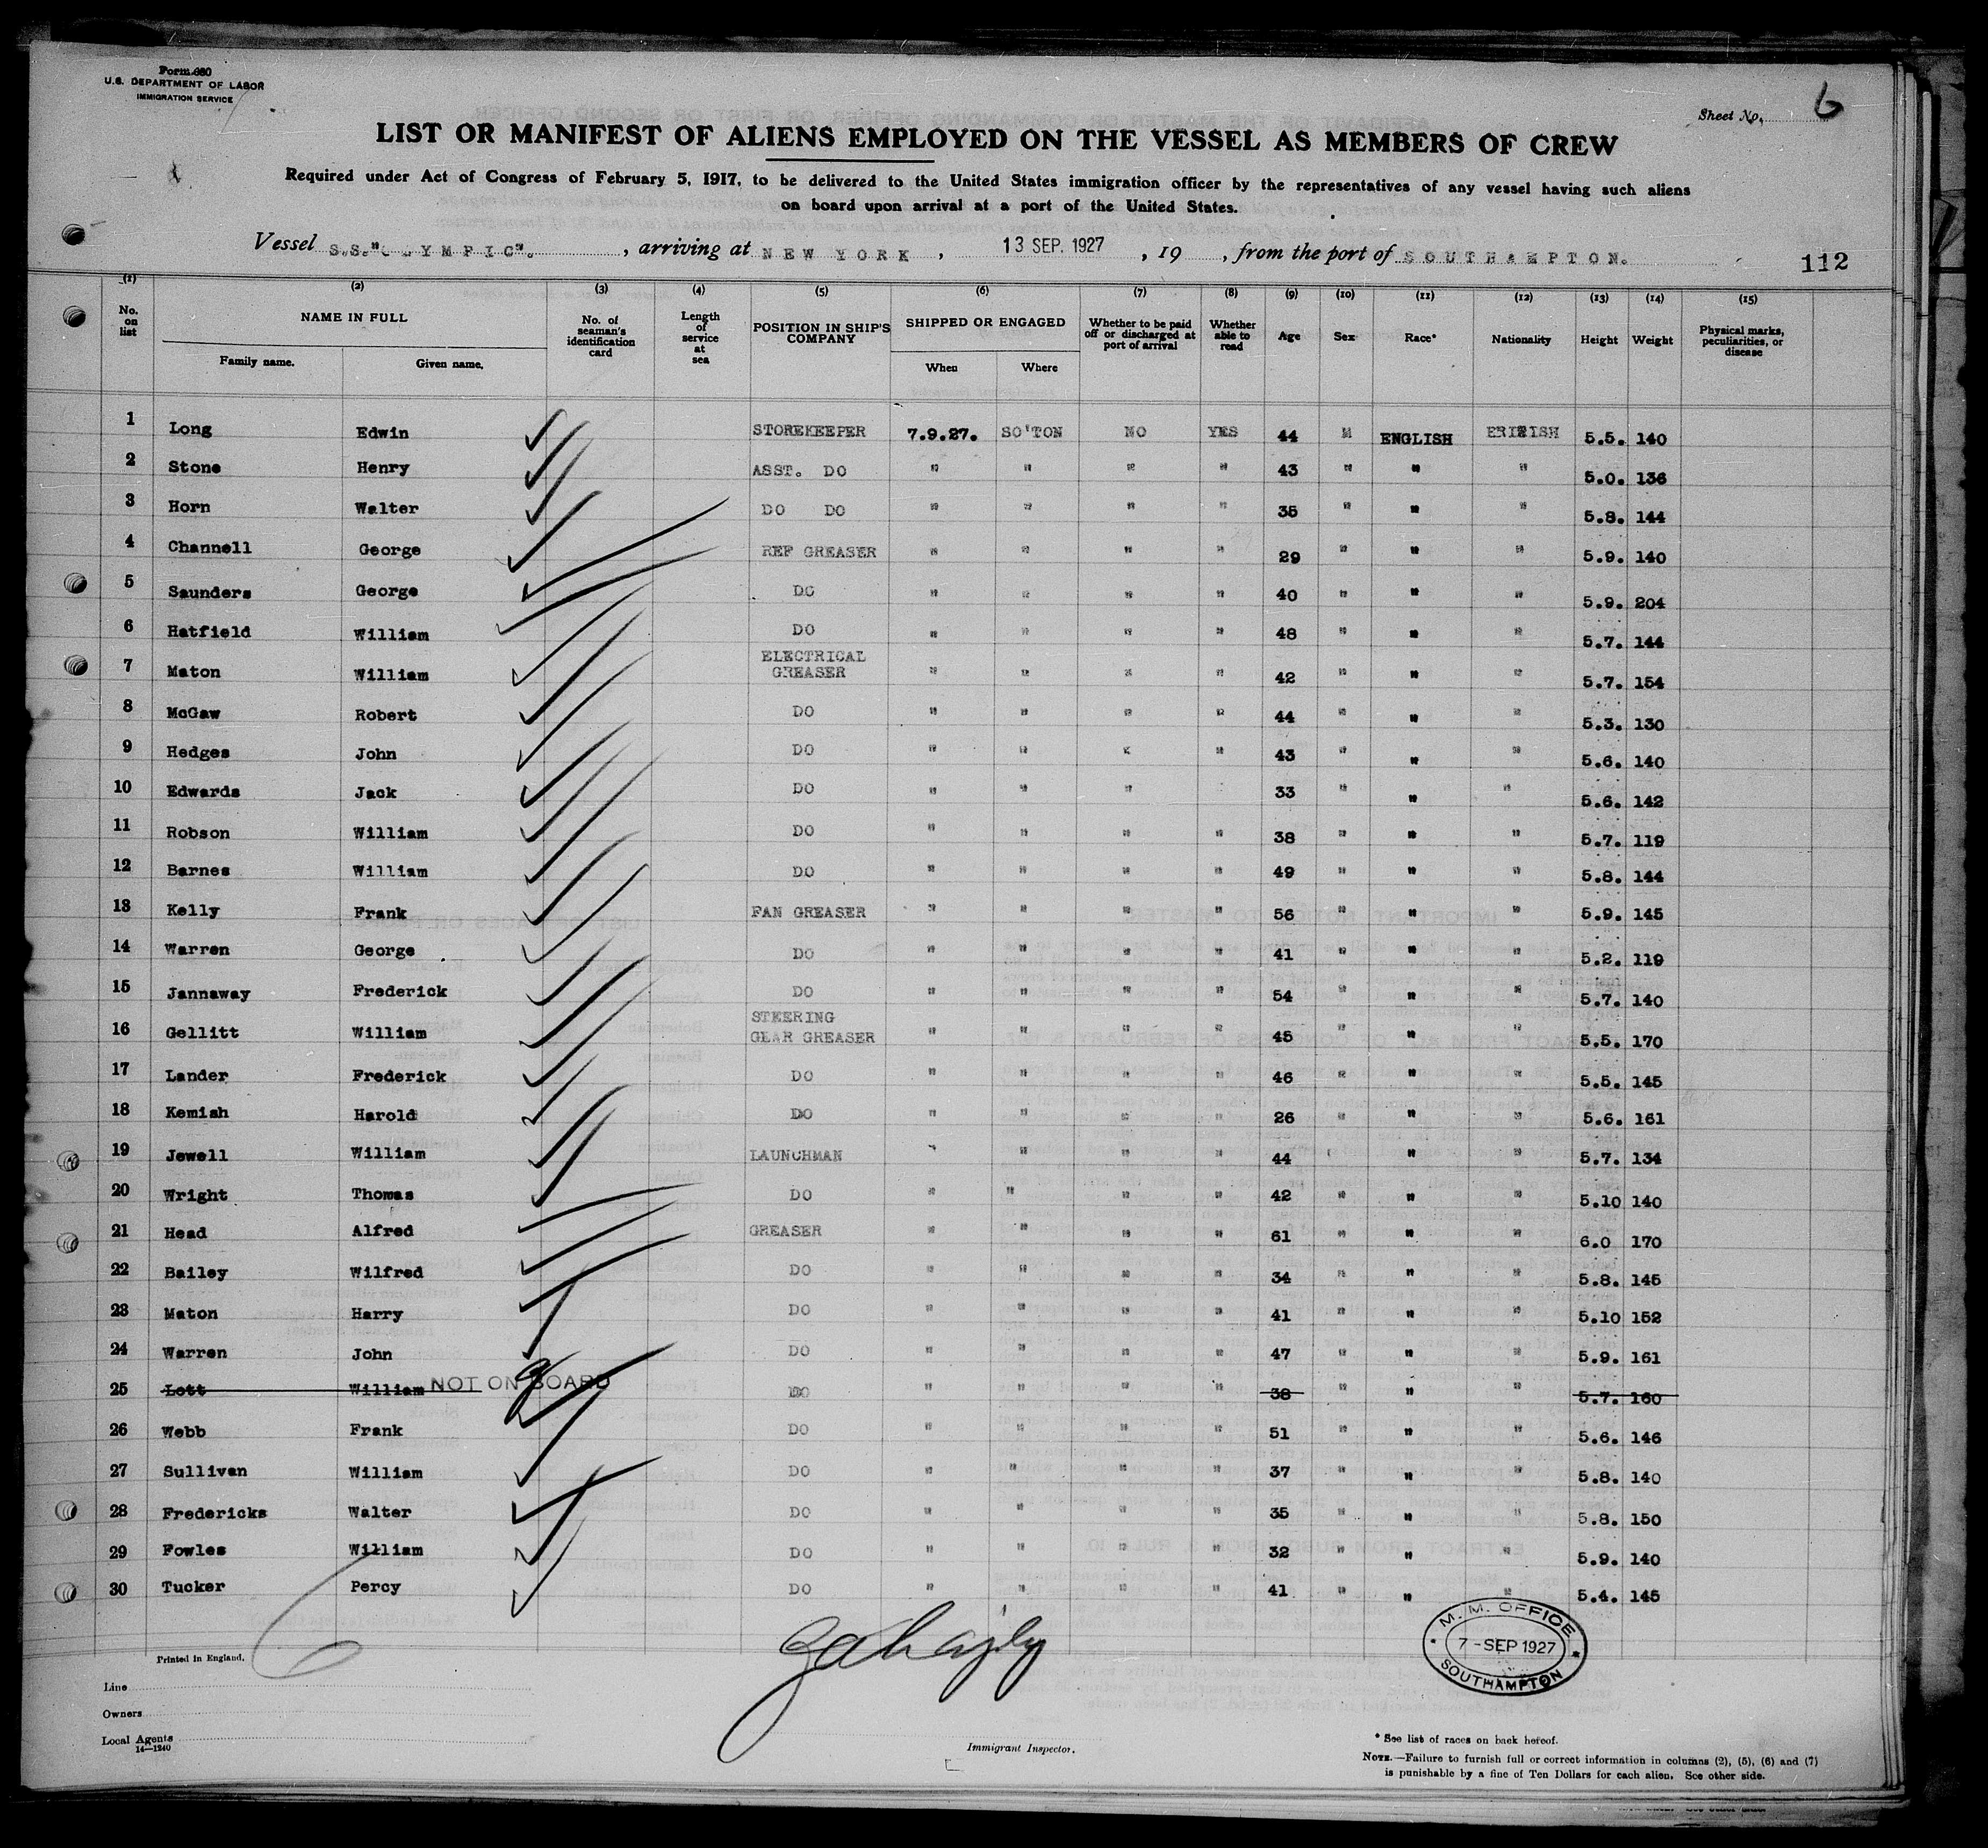 Form 680
U.S. DEPARTMENT OF LABOR
IMMIGRATION SERVICE
Sheet No. 6
LIST OR MANIFEST OF ALIENS EMPLOYED ON THE VESSEL AS MEMBERS OF CREW
Required under Act of Congress of February 5, 1917, to be delivered to the United States immigration officer by the representatives of any vessel having such aliens
on board upon arrival at a port of the United States.
Vessel S.S."OLYMPIC". , arriving at NEW YORK , 13 SEP. 1927 , 19 , from the port of SOUTHAMPTON.
112
(1) (2) (3) (4) (5) (6) (7) (8) (9) (10) (11) (12) (13) (14) (15)
No. on list NAME IN FULL Family name. Given name. No. of seaman's identification card Length of service at sea POSITION IN SHIP'S COMPANY SHIPPED OR ENGAGED When Where Whether to be paid off or discharged at port of arrival Whether able to read Age Sex Race* Nationality Height Weight Physical marks, peculiarities, or disease
1 Long Edwin STOREKEEPER 7.9.27. SO'TON NO YES 44 M ENGLISH BRITISH 5.5. 140
2 Stone Henry ASST. DO " " " " 43 " " " 5.0. 136
3 Horn Walter DO DO " " " " 35 " " " 5.8. 144
4 Channell George REF GREASER " " " " 29 " " " 5.9. 140
5 Saunders George DO " " " " 40 " " " 5.9. 204
6 Hatfield William DO " " " " 48 " " " 5.7. 144
7 Maton William ELECTRICAL GREASER " " " " 42 " " " 5.7. 154
8 McGaw Robert DO " " " " 44 " " " 5.3. 130
9 Hedges John DO " " " " 43 " " " 5.6. 140
10 Edwards Jack DO " " " 33 " " " 5.6. 142
11 Robson William DO " " " " 38 " " " 5.7. 119
12 Barnes William DO " " " " 49 " " " 5.8. 144
13 Kelly Frank FAN GREASER " " " " 56 " " " 5.9. 145
14 Warren George DO " " " " 41 " " " 5.2. 119
15 Jannaway Frederick DO " " " " 54 " " " 5.7. 140
16 Gellitt William STEERING GEAR GREASER " " " " 45 " " " 5.5. 170
17 Lander Frederick DO " " " " 46 " " " 5.5. 145
18 Kemish Harold DO " " " " 26 " " " 5.6. 161
19 Jewell William LAUNCHMAN " " " " 44 " " " 5.7. 134
20 Wright Thomas DO " " " " 42 " " " 5.10 140
21 Head Alfred GREASER " " " " 61 " " " 6.0 170
22 Bailey Wilfred DO " " " " 34 " " " 5.8. 145
23 Maton Harry DO " " " " 41 " " " 5.10 152
24 Warren John DO " " " " 47 " " " 5.9. 161
25 Lott William NOT ON BOARD DO " " " " 38 " " " 5.7. 160
26 Webb Frank DO " " " " 51 " " " 5.6. 146
27 Sullivan William DO " " " " 37 " " " 5.8. 140
28 Fredericks Walter DO " " " " 35 " " " 5.8. 150
29 Fowles William DO " " " " 32 " " " 5.9. 140
30 Tucker Percy DO " " " " 41 " " " 5.4. 145
M. M. OFFICE
7 - SEP 1927
SOUTHAMPTON
Printed in England.
Line
Owners
Local Agents
14—1240
Immigrant Inspector.
* See list of races on back hereof.
NOTE.—Failure to furnish full or correct information in columns (2), (5), (6) and (7)
is punishable by a fine of Ten Dollars for each alien. See other side.